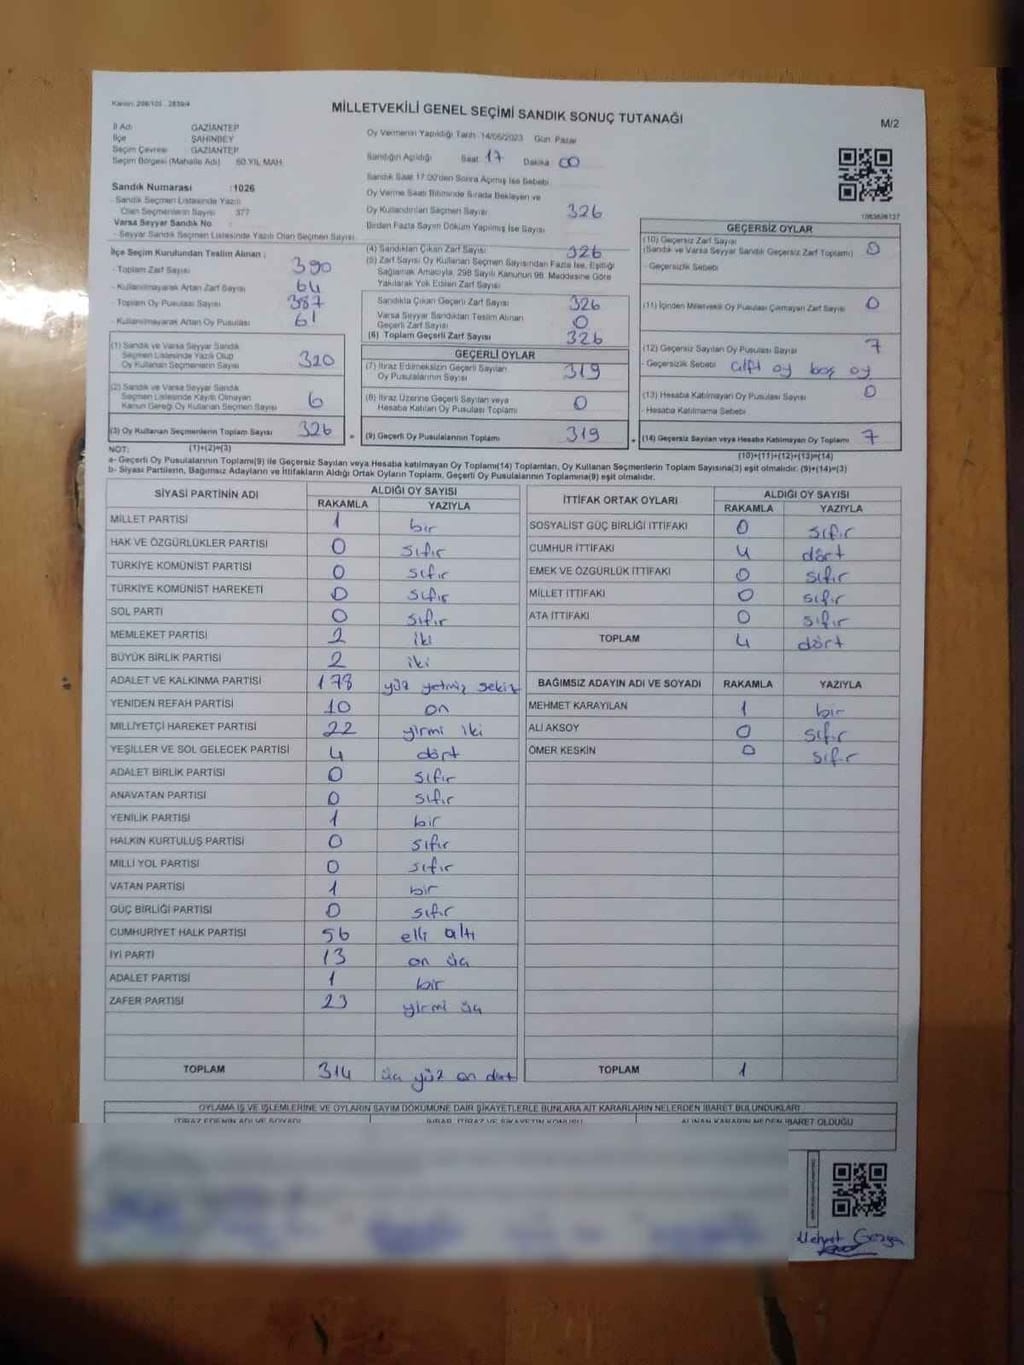 Kanun: 298/105 - 2839/4
MİLLETVEKİLİ GENEL SEÇİMİ SANDIK SONUÇ TUTANAĞI
M/2
İl Adı GAZİANTEP
İlçe ŞAHİNBEY
Seçim Çevresi GAZİANTEP
Seçim Bölgesi (Mahalle Adı) 60.YIL MAH.
Sandık Numarası :1026
- Sandık Seçmen Listesinde Yazılı
Olan Seçmenlerin Sayısı 377
Varsa Seyyar Sandık No
- Seyyar Sandık Seçmen Listesinde Yazılı Olan Seçmen Sayısı
Oy Vermenin Yapıldığı Tarih 14/05/2023 Gün Pazar
Sandığın Açıldığı Saat 17 Dakika 00
Sandık Saat 17:00'den Sonra Açılmış İse Sebebi
Oy Verme Saati Bitiminde Sırada Bekleyen ve
Oy Kullandırılan Seçmen Sayısı 326
Birden Fazla Sayım Döküm Yapılmış İse Sayısı
İlçe Seçim Kurulundan Teslim Alınan :
- Toplam Zarf Sayısı 390
- Kullanılmayarak Artan Zarf Sayısı 64
- Toplam Oy Pusulası Sayısı 387
- Kullanılmayarak Artan Oy Pusulası 61
(1) Sandık ve Varsa Seyyar Sandık
Seçmen Listesinde Yazılı Olup
Oy Kullanan Seçmenlerin Sayısı 320
(2) Sandık ve Varsa Seyyar Sandık
Seçmen Listesinde Kayıtlı Olmayan
Kanun Gereği Oy Kullanan Seçmen Sayısı 6
(3) Oy Kullanan Seçmenlerin Toplam Sayısı 326
(1)+(2)=(3)
(4) Sandıktan Çıkan Zarf Sayısı 326
(5) Zarf Sayısı Oy Kullanan Seçmen Sayısından Fazla İse, Eşitliği
Sağlamak Amacıyla, 298 Sayılı Kanunun 98. Maddesine Göre
Yakılarak Yok Edilen Zarf Sayısı
Sandıkta Çıkan Geçerli Zarf Sayısı 326
Varsa Seyyar Sandıktan Teslim Alınan
Geçerli Zarf Sayısı 0
(6) Toplam Geçerli Zarf Sayısı 326
GEÇERLİ OYLAR
(7) İtiraz Edilmeksizin Geçerli Sayılan
Oy Pusulalarının Sayısı 319
(8) İtiraz Üzerine Geçerli Sayılan veya
Hesaba Katılan Oy Pusulası Toplamı 0
= (9) Geçerli Oy Pusulalarının Toplamı 319
GEÇERSİZ OYLAR
(10) Geçersiz Zarf Sayısı 0
(Sandık ve Varsa Seyyar Sandık Geçersiz Zarf Toplamı)
- Geçersizlik Sebebi
(11) İçinden Milletvekili Oy Pusulası Çıkmayan Zarf Sayısı 0
(12) Geçersiz Sayılan Oy Pusulası Sayısı 7
- Geçersizlik Sebebi çift oy boş oy
(13) Hesaba Katılmayan Oy Pusulası Sayısı 0
- Hesaba Katılmama Sebebi
+ (14) Geçersiz Sayılan veya Hesaba Katılmayan Oy Toplamı 7
(10)+(11)+(12)+(13)=(14)
NOT:
a- Geçerli Oy Pusulalarının Toplamı(9) ile Geçersiz Sayılan veya Hesaba katılmayan Oy Toplamı(14) Toplamları, Oy Kullanan Seçmenlerin Toplam Sayısına(3) eşit olmalıdır. (9)+(14)=(3)
b- Siyasi Partilerin, Bağımsız Adayların ve İttifakların Aldığı Ortak Oyların Toplamı, Geçerli Oy Pusulalarının Toplamına(9) eşit olmalıdır.
SİYASİ PARTİNİN ADI ALDIĞI OY SAYISI
RAKAMLA YAZIYLA
MİLLET PARTİSİ 1 bir
HAK VE ÖZGÜRLÜKLER PARTİSİ 0 sıfır
TÜRKİYE KOMÜNİST PARTİSİ 0 sıfır
TÜRKİYE KOMÜNİST HAREKETİ 0 sıfır
SOL PARTİ 0 sıfır
MEMLEKET PARTİSİ 2 iki
BÜYÜK BİRLİK PARTİSİ 2 iki
ADALET VE KALKINMA PARTİSİ 178 yüz yetmiş sekiz
YENİDEN REFAH PARTİSİ 10 on
MİLLİYETÇİ HAREKET PARTİSİ 22 yirmi iki
YEŞİLLER VE SOL GELECEK PARTİSİ 4 dört
ADALET BİRLİK PARTİSİ 0 sıfır
ANAVATAN PARTİSİ 0 sıfır
YENİLİK PARTİSİ 1 bir
HALKIN KURTULUŞ PARTİSİ 0 sıfır
MİLLİ YOL PARTİSİ 0 sıfır
VATAN PARTİSİ 1 bir
GÜÇ BİRLİĞİ PARTİSİ 0 sıfır
CUMHURİYET HALK PARTİSİ 56 elli altı
İYİ PARTİ 13 on üç
ADALET PARTİSİ 1 bir
ZAFER PARTİSİ 23 yirmi üç
TOPLAM 314 üç yüz on dört
İTTİFAK ORTAK OYLARI ALDIĞI OY SAYISI
RAKAMLA YAZIYLA
SOSYALİST GÜÇ BİRLİĞİ İTTİFAKI 0 sıfır
CUMHUR İTTİFAKI 4 dört
EMEK VE ÖZGÜRLÜK İTTİFAKI 0 sıfır
MİLLET İTTİFAKI 0 sıfır
ATA İTTİFAKI 0 sıfır
TOPLAM 4 dört
BAĞIMSIZ ADAYIN ADI VE SOYADI RAKAMLA YAZIYLA
MEHMET KARAYILAN 1 bir
ALİ AKSOY 0 sıfır
ÖMER KESKİN 0 sıfır
TOPLAM 1
OYLAMA İŞ VE İŞLEMLERİNE VE OYLARIN SAYIM DÖKÜMÜNE DAİR ŞİKAYETLERLE BUNLARA AİT KARARLARIN NELERDEN İBARET BULUNDUKLARI
İTİRAZ EDENİN ADI VE SOYADI
ALINAN KARARIN NEDEN İBARET OLDUĞU